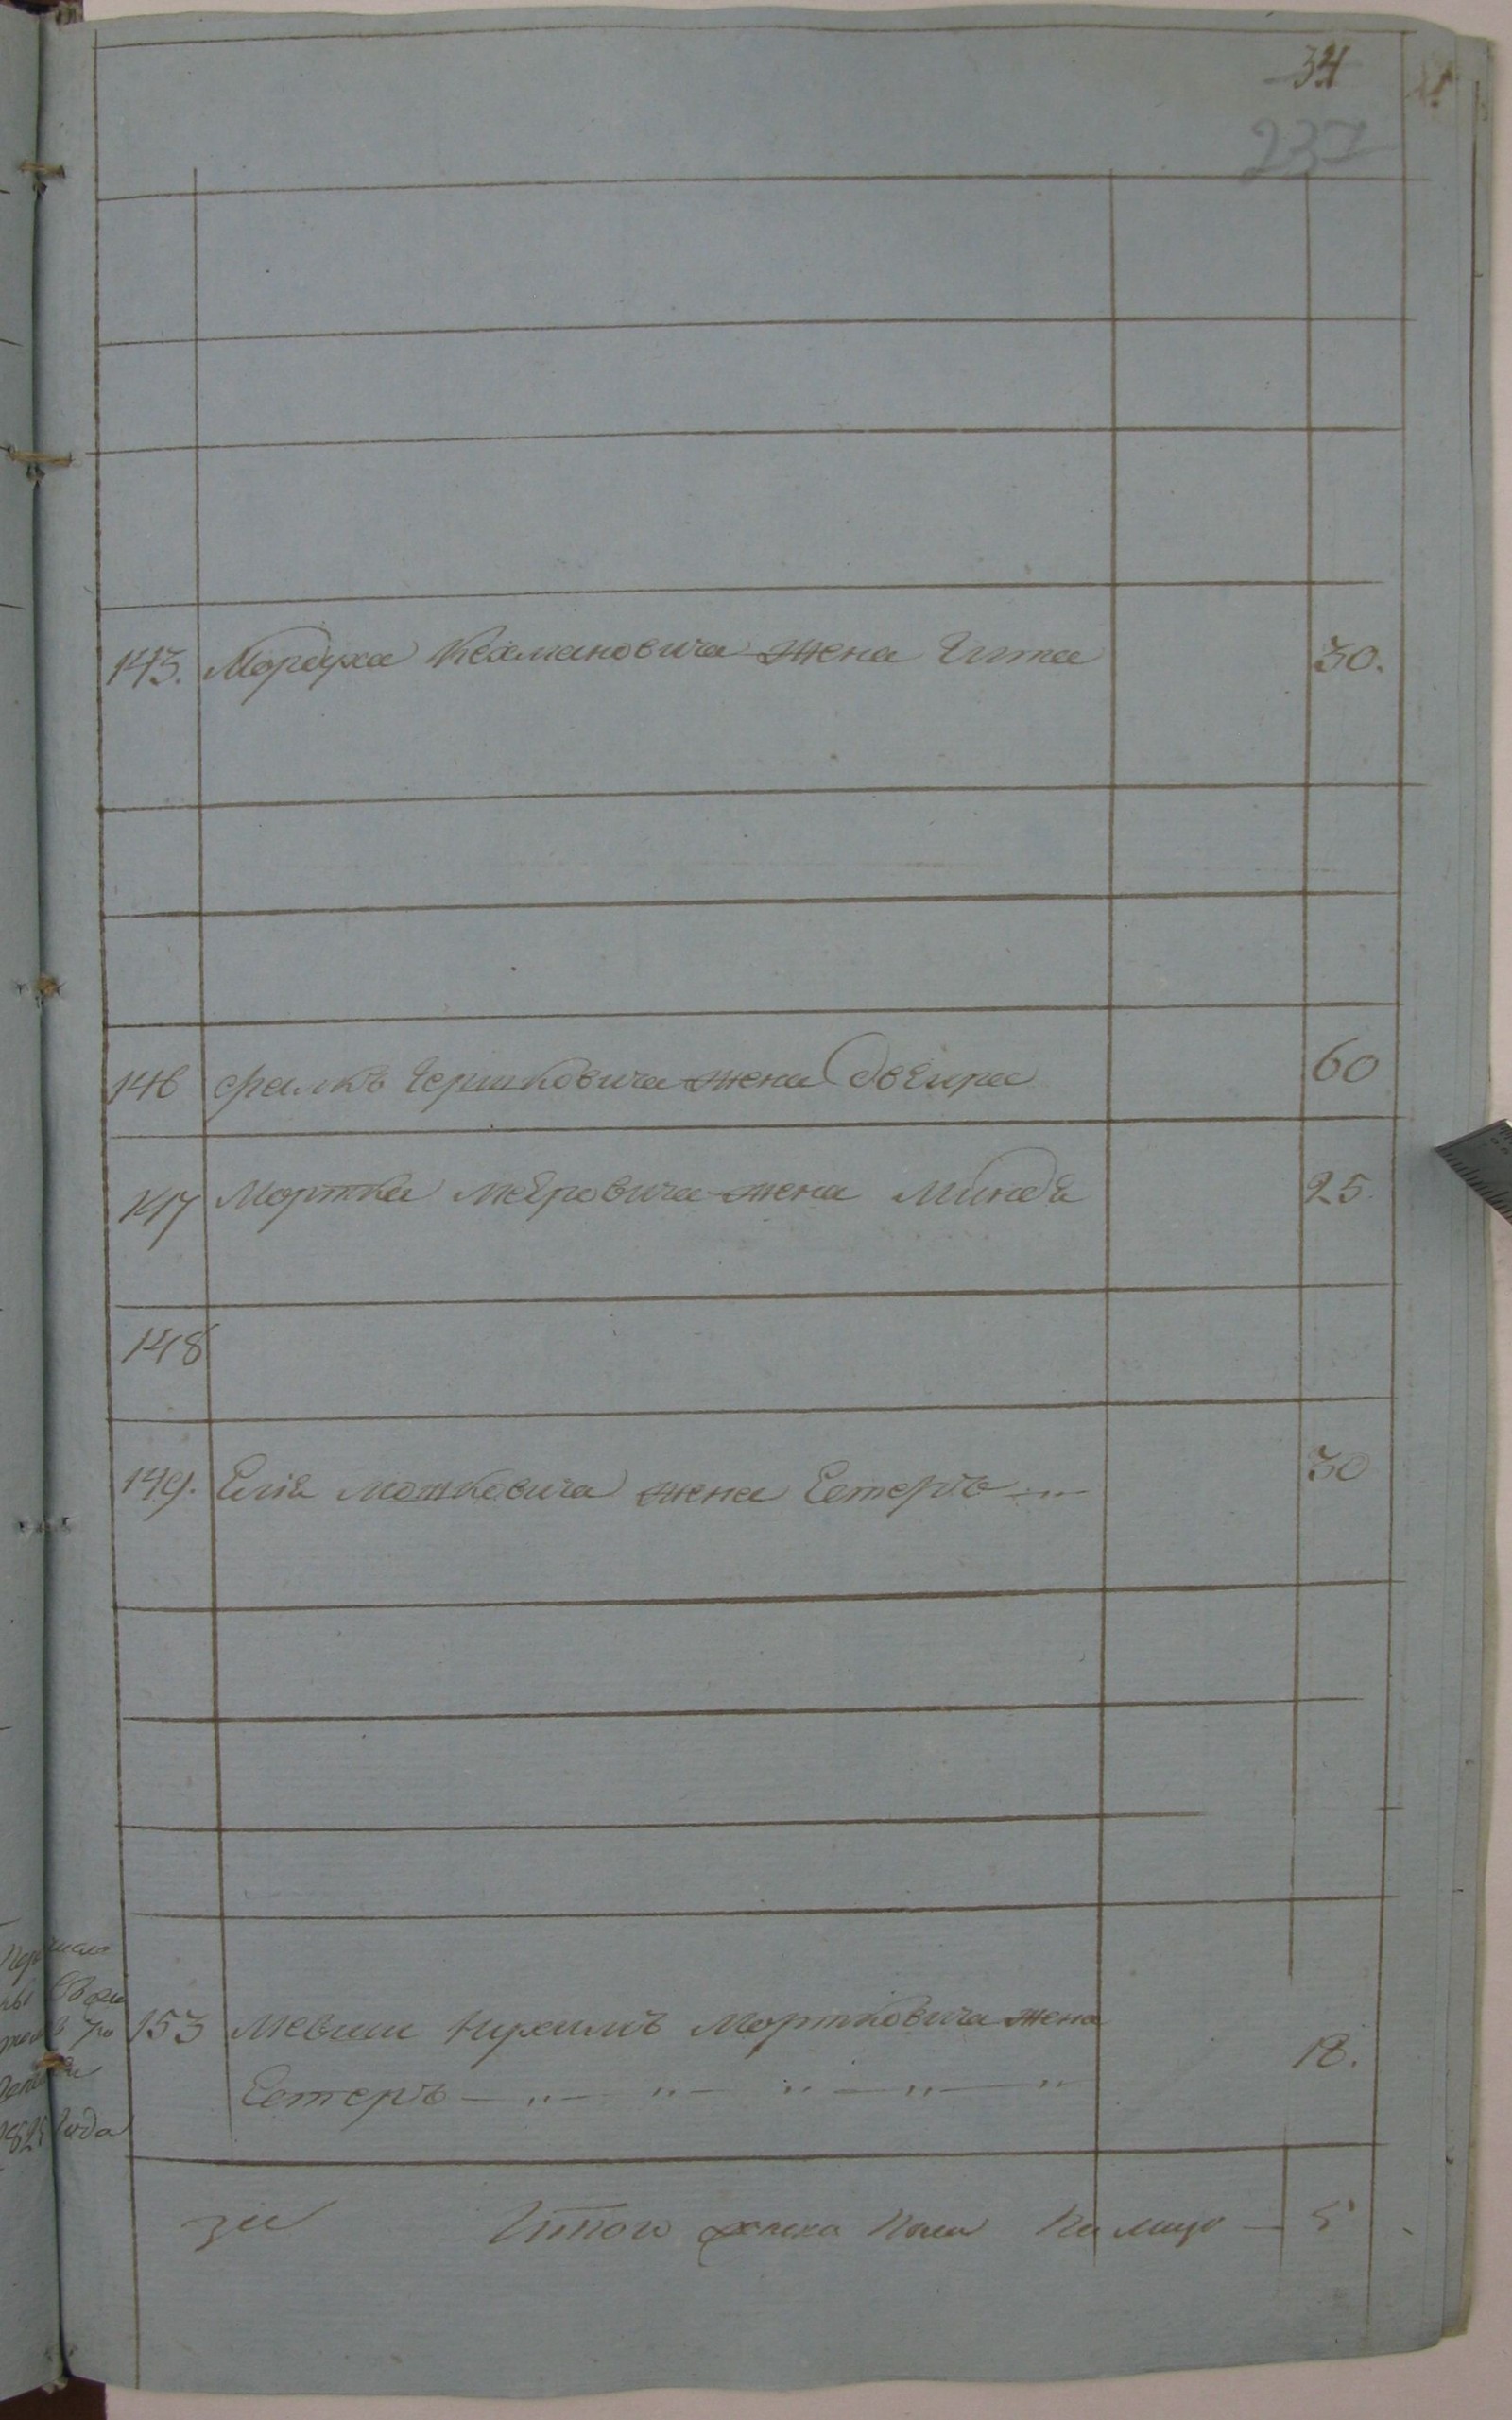 34
237
143. Мордуха Нехмановича жена Гита 30.
146 Фалкъ Гершковича жена Двейра 60
147 Мортка Меѣровича жена Миндѣ 25.
148
149. Еліѣ Мошковича жена Естеръ 30
153 Мевши Ирхимъ Мортковича жена
Естеръ — „ — „ — „ — „ — „ 18.
Итого женска пола на лицо — 5